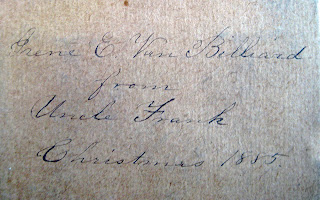 Irene E. Van Billiard
from
Uncle Frank
Christmas 1885